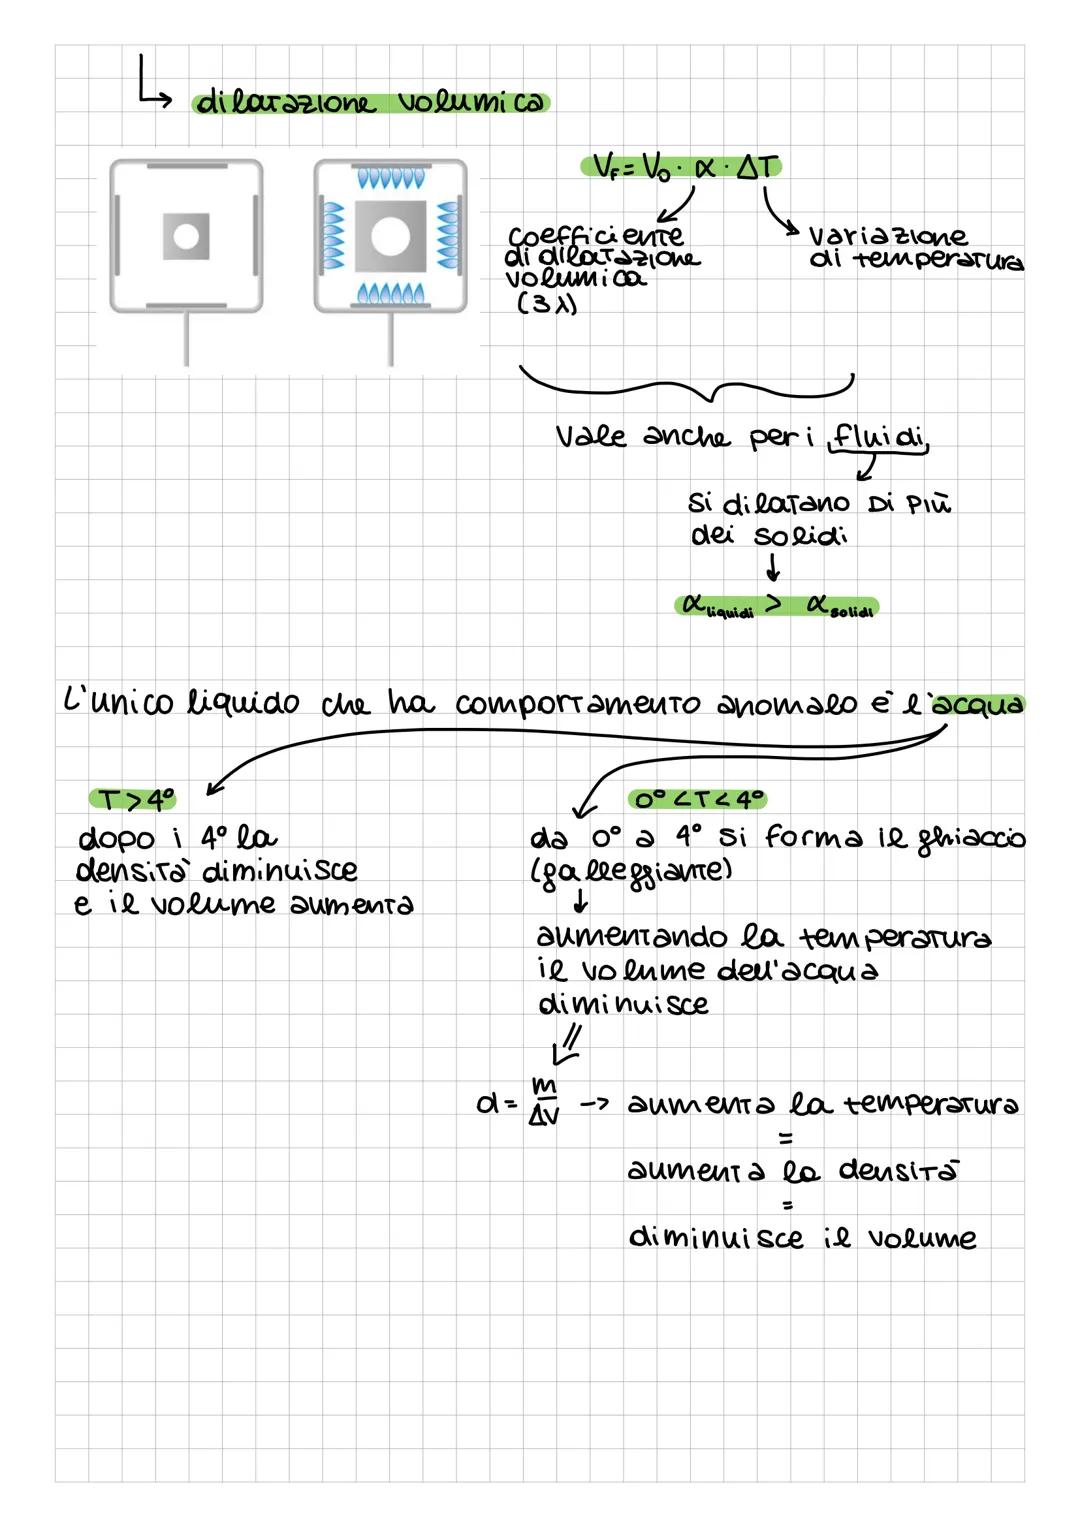 dilatazione volumica
V_F = V_0 · α · ΔT
coefficiente
di dilatazione
volumica
(3λ)
variazione
di temperatura
Vale anche per i fluidi
si dilatano di più
dei solidi
α liquidi > α solidi
L'unico liquido che ha comportamento anomalo è l'acqua
T > 4°
dopo i 4° la
densità diminuisce
e il volume aumenta
0° < T < 4°
da 0° a 4° si forma il ghiaccio
(galleggiante)
aumentando la temperatura
il volume dell'acqua
diminuisce
d = m/ΔV -> aumenta la temperatura
=
aumenta la densità
=
diminuisce il volume